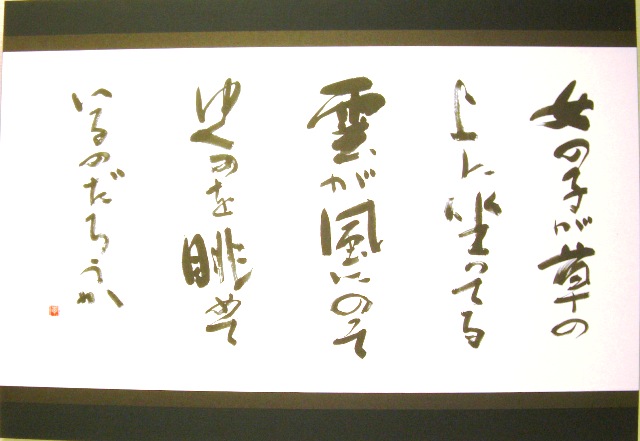 女の子が草の
上に坐ってる
雲が風にのって
ゆくのを眺めて
いるのだろうか